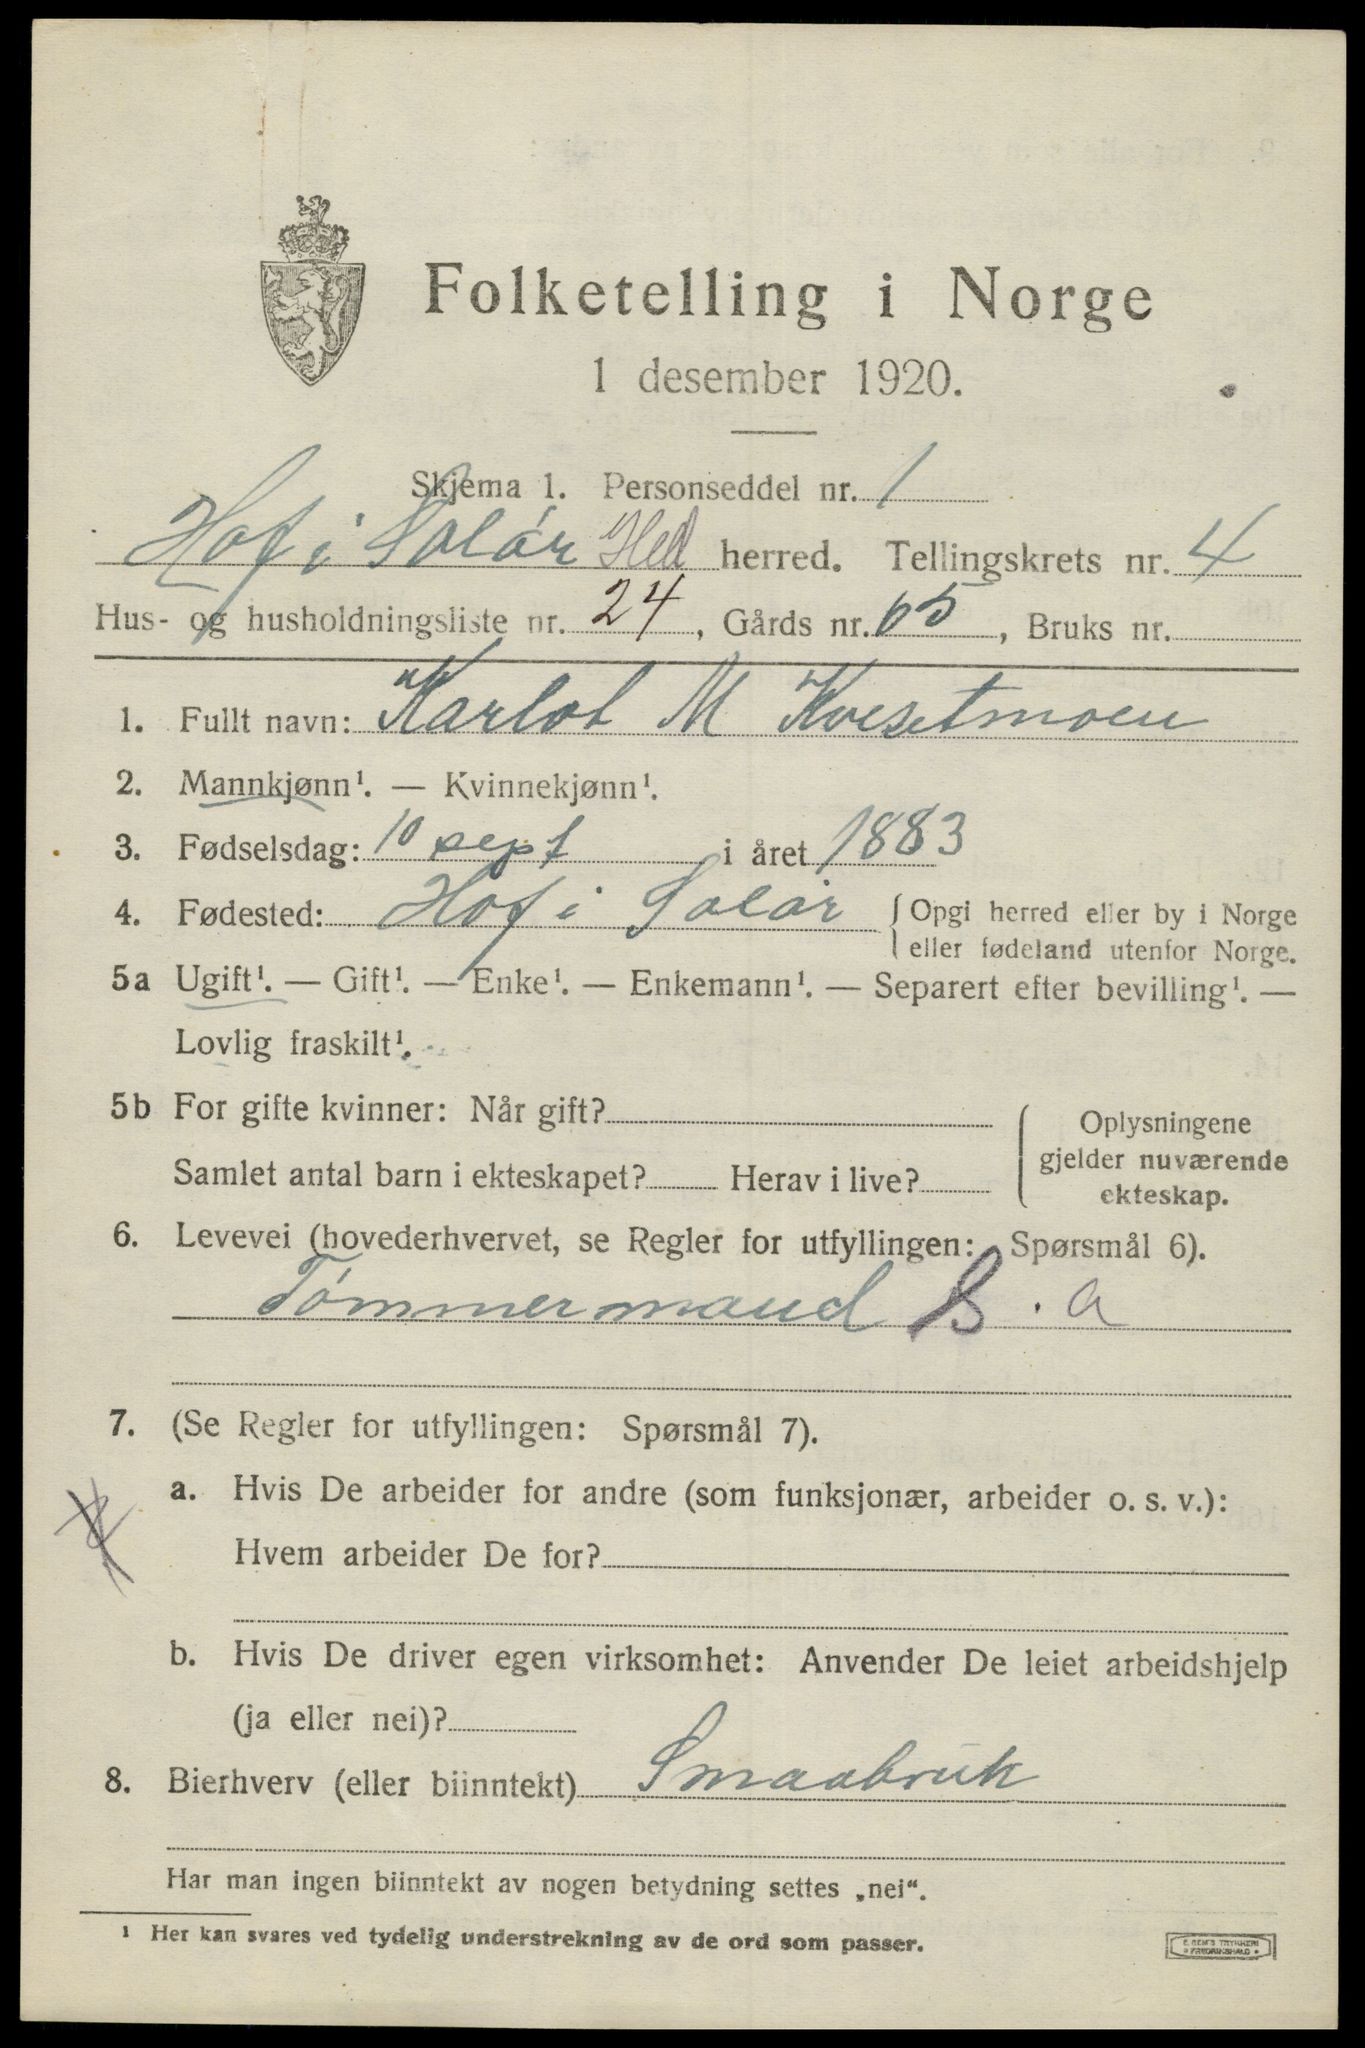 Folketelling i Norge
1 desember 1920.
Skjema 1. Personseddel nr. 1
Hof i Solør Hed herred. Tellingskrets nr. 4
Hus- og husholdningsliste nr. 24, Gårds nr. 65, Bruks nr.
1. Fullt navn: Karlot M Kvesetmoen
2. Mannkjønn¹. — Kvinnekjønn¹.
3. Fødselsdag: 10 sept i året 1883
4. Fødested: Hof i Solør { Opgi herred eller by i Norge
eller fødeland utenfor Norge.
5a Ugift¹. — Gift¹. — Enke¹. — Enkemann¹. — Separert efter bevilling¹. —
Lovlig fraskilt¹.
5b For gifte kvinner: Når gift?
Samlet antal barn i ekteskapet? Herav i live?
{ Oplysningene
gjelder nuværende
ekteskap.
6. Levevei (hovederhvervet, se Regler for utfyllingen: Spørsmål 6).
Tømmermand S. a
7. (Se Regler for utfyllingen: Spørsmål 7).
a. Hvis De arbeider for andre (som funksjonær, arbeider o. s. v.):
Hvem arbeider De for?
b. Hvis De driver egen virksomhet: Anvender De leiet arbeidshjelp
(ja eller nei)?
8. Bierhverv (eller biinntekt) Smaabruk
Har man ingen biinntekt av nogen betydning settes „nei“.
¹ Her kan svares ved tydelig understrekning av de ord som passer.
E. SEM'S TRYKKERI
FREDRIKSHALD